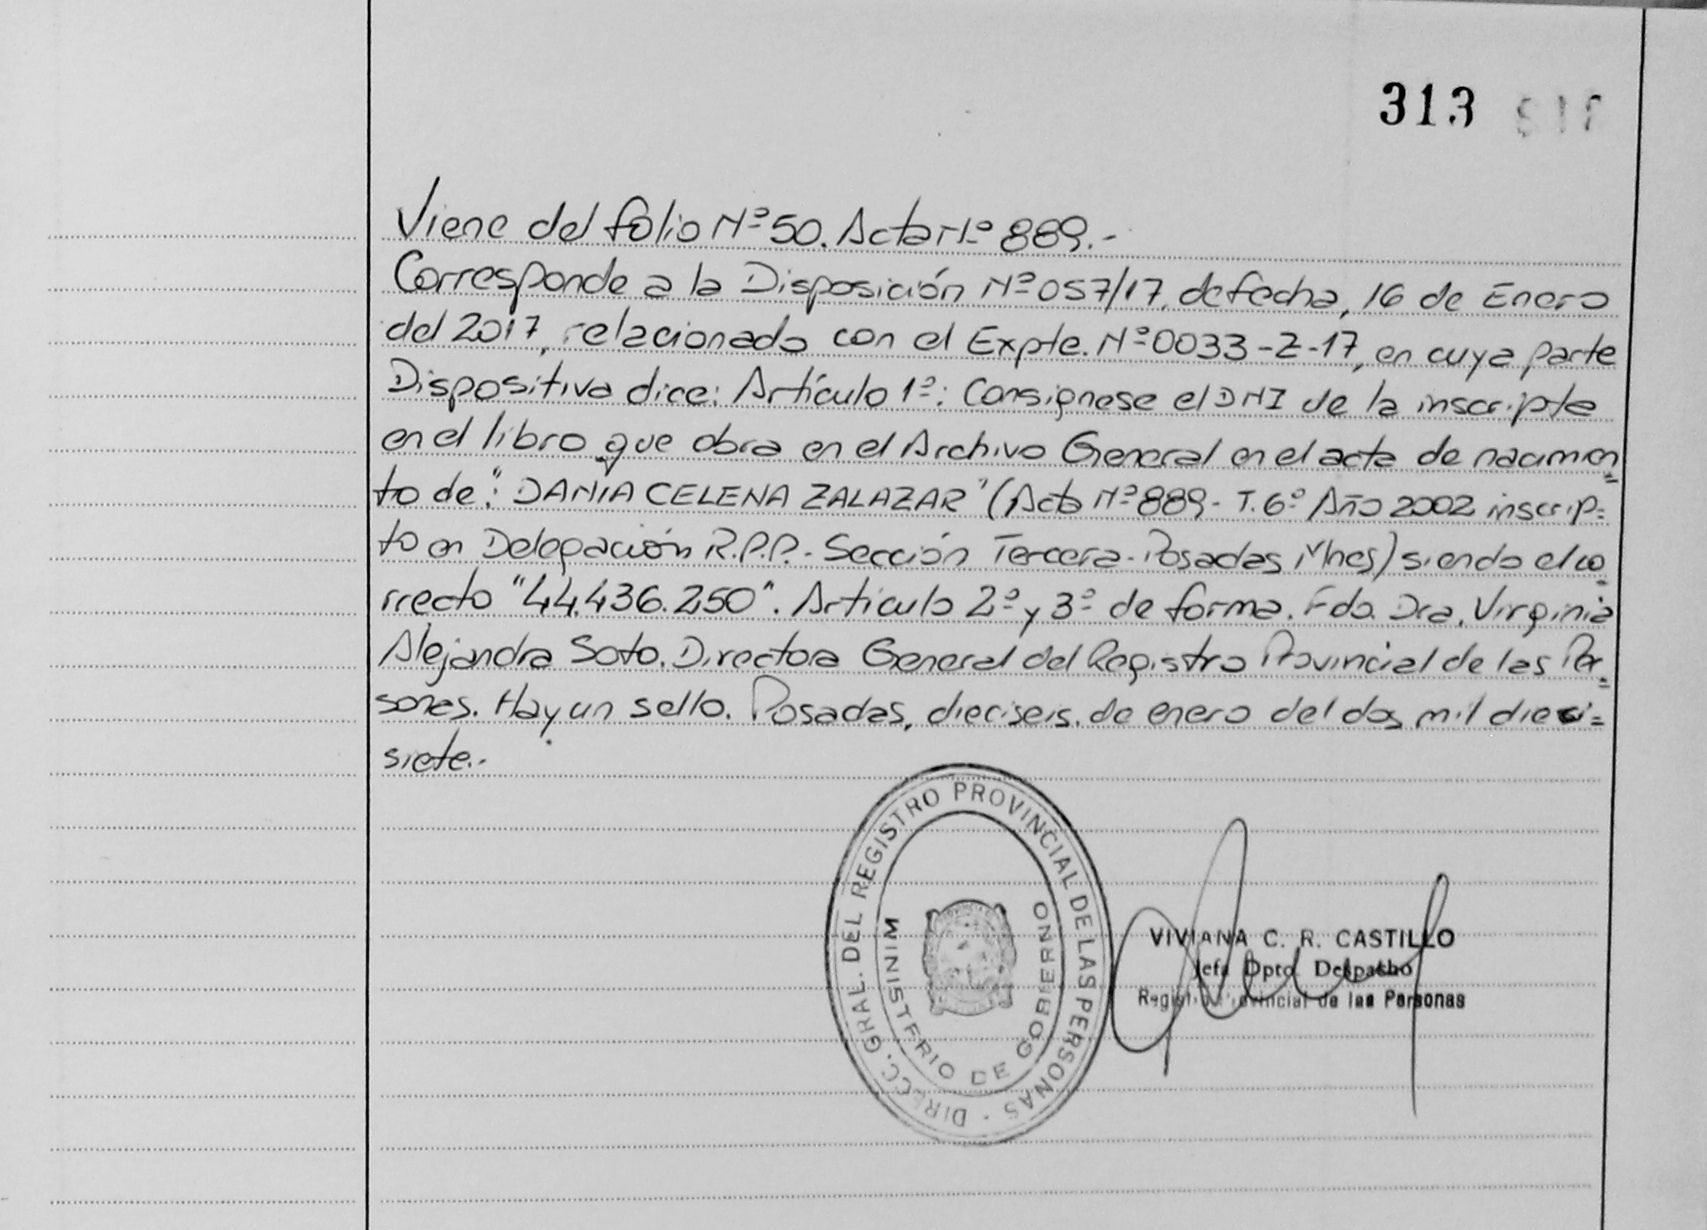 313
Viene del folio Nº 50. Acta Nº 889.-
Corresponde a la Disposición Nº 057/17, de fecha, 16 de Enero
del 2017, relacionado con el Expte. Nº 0033-Z-17, en cuya parte
Dispositiva dice: Artículo 1º: Consignese el DNI de la inscripta
en el libro que obra en el Archivo General en el acta de nacimien=
to de: "DANIA CELENA ZALAZAR" (Acta Nº 889- T. 6º Año 2002 inscrip=
to en Delegación R.P.P.- Sección Tercera- Posadas Mnes) siendo el co=
rrecto "44.436.250". Artículo 2º y 3º de forma. Fdo. Dra. Virginia
Alejandra Soto. Directora General del Registro Provincial de las Per=
sonas. Hay un sello. Posadas, dieciseis de enero del dos mil dieci=
siete.-
DIRECC. GRAL. DEL REGISTRO PROVINCIAL DE LAS PERSONAS -
MINISTERIO DE GOBIERNO
VIVIANA C. R. CASTILLO
Jefa Dpto. Despacho
Registro Provincial de las Personas